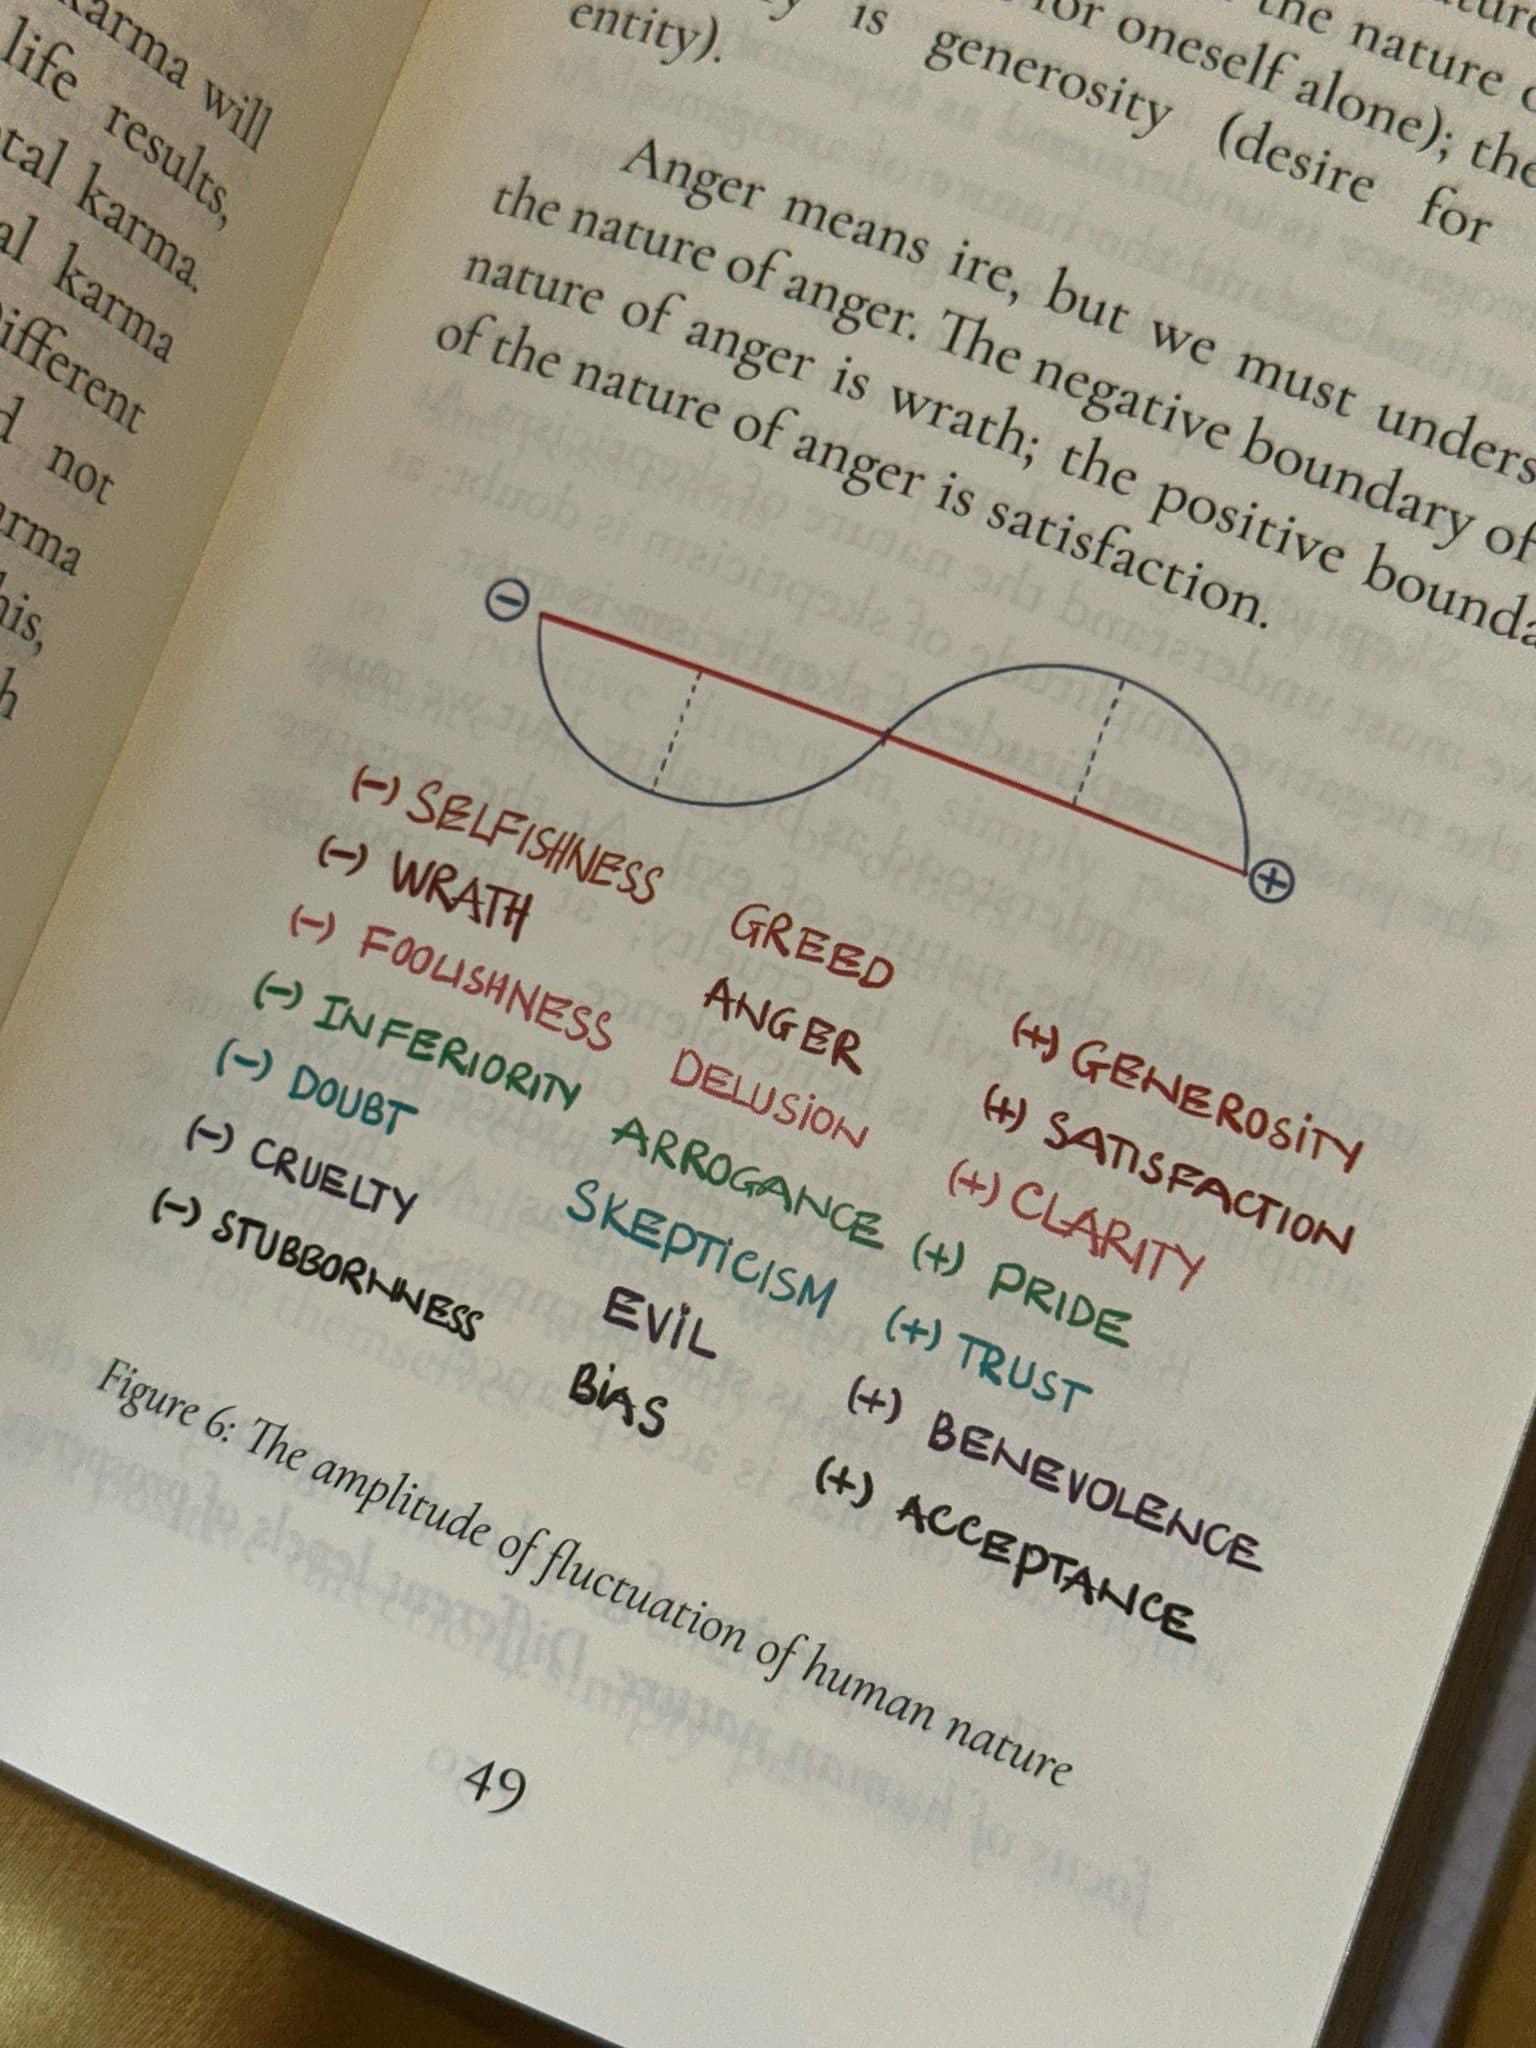 karma will
life results,
karma.
karma
Different
not
entity).
is generosity (desire for
for oneself alone); the
the nature
Anger means ire, but we must
the nature of anger. The negative boundary of
nature of anger is wrath; the positive
of the nature of anger is satisfaction.
−
+
(−) SELFISHNESS GREED (+) GENEROSITY
(−) WRATH ANGER (+) SATISFACTION
(−) FOOLISHNESS DELUSION (+) CLARITY
(−) INFERIORITY ARROGANCE (+) PRIDE
(−) DOUBT SKEPTICISM (+) TRUST
(−) CRUELTY EVIL (+) BENEVOLENCE
(−) STUBBORNNESS BIAS (+) ACCEPTANCE
Figure 6: The amplitude of fluctuation of human nature
49